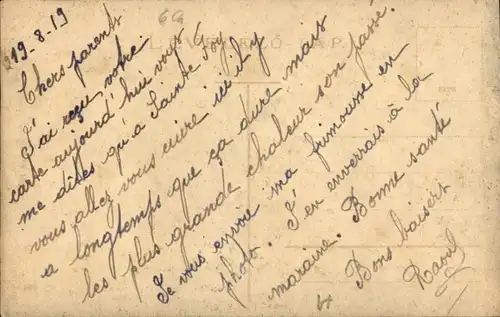 19-8-19
66
LEVELEZŐ LAP
Chers parents
J'ai reçu votre
carte aujourd'hui vous
me dites qu'a Sainte Foy
vous allez vous cuire ici il y
a longtemps que ça dure mais
les plus grande chaleur son passé.
Je vous envoie ma frimousse en
photo. J'en enverrais à la
maraine. Bonne santé
Bons baisers
Raoul